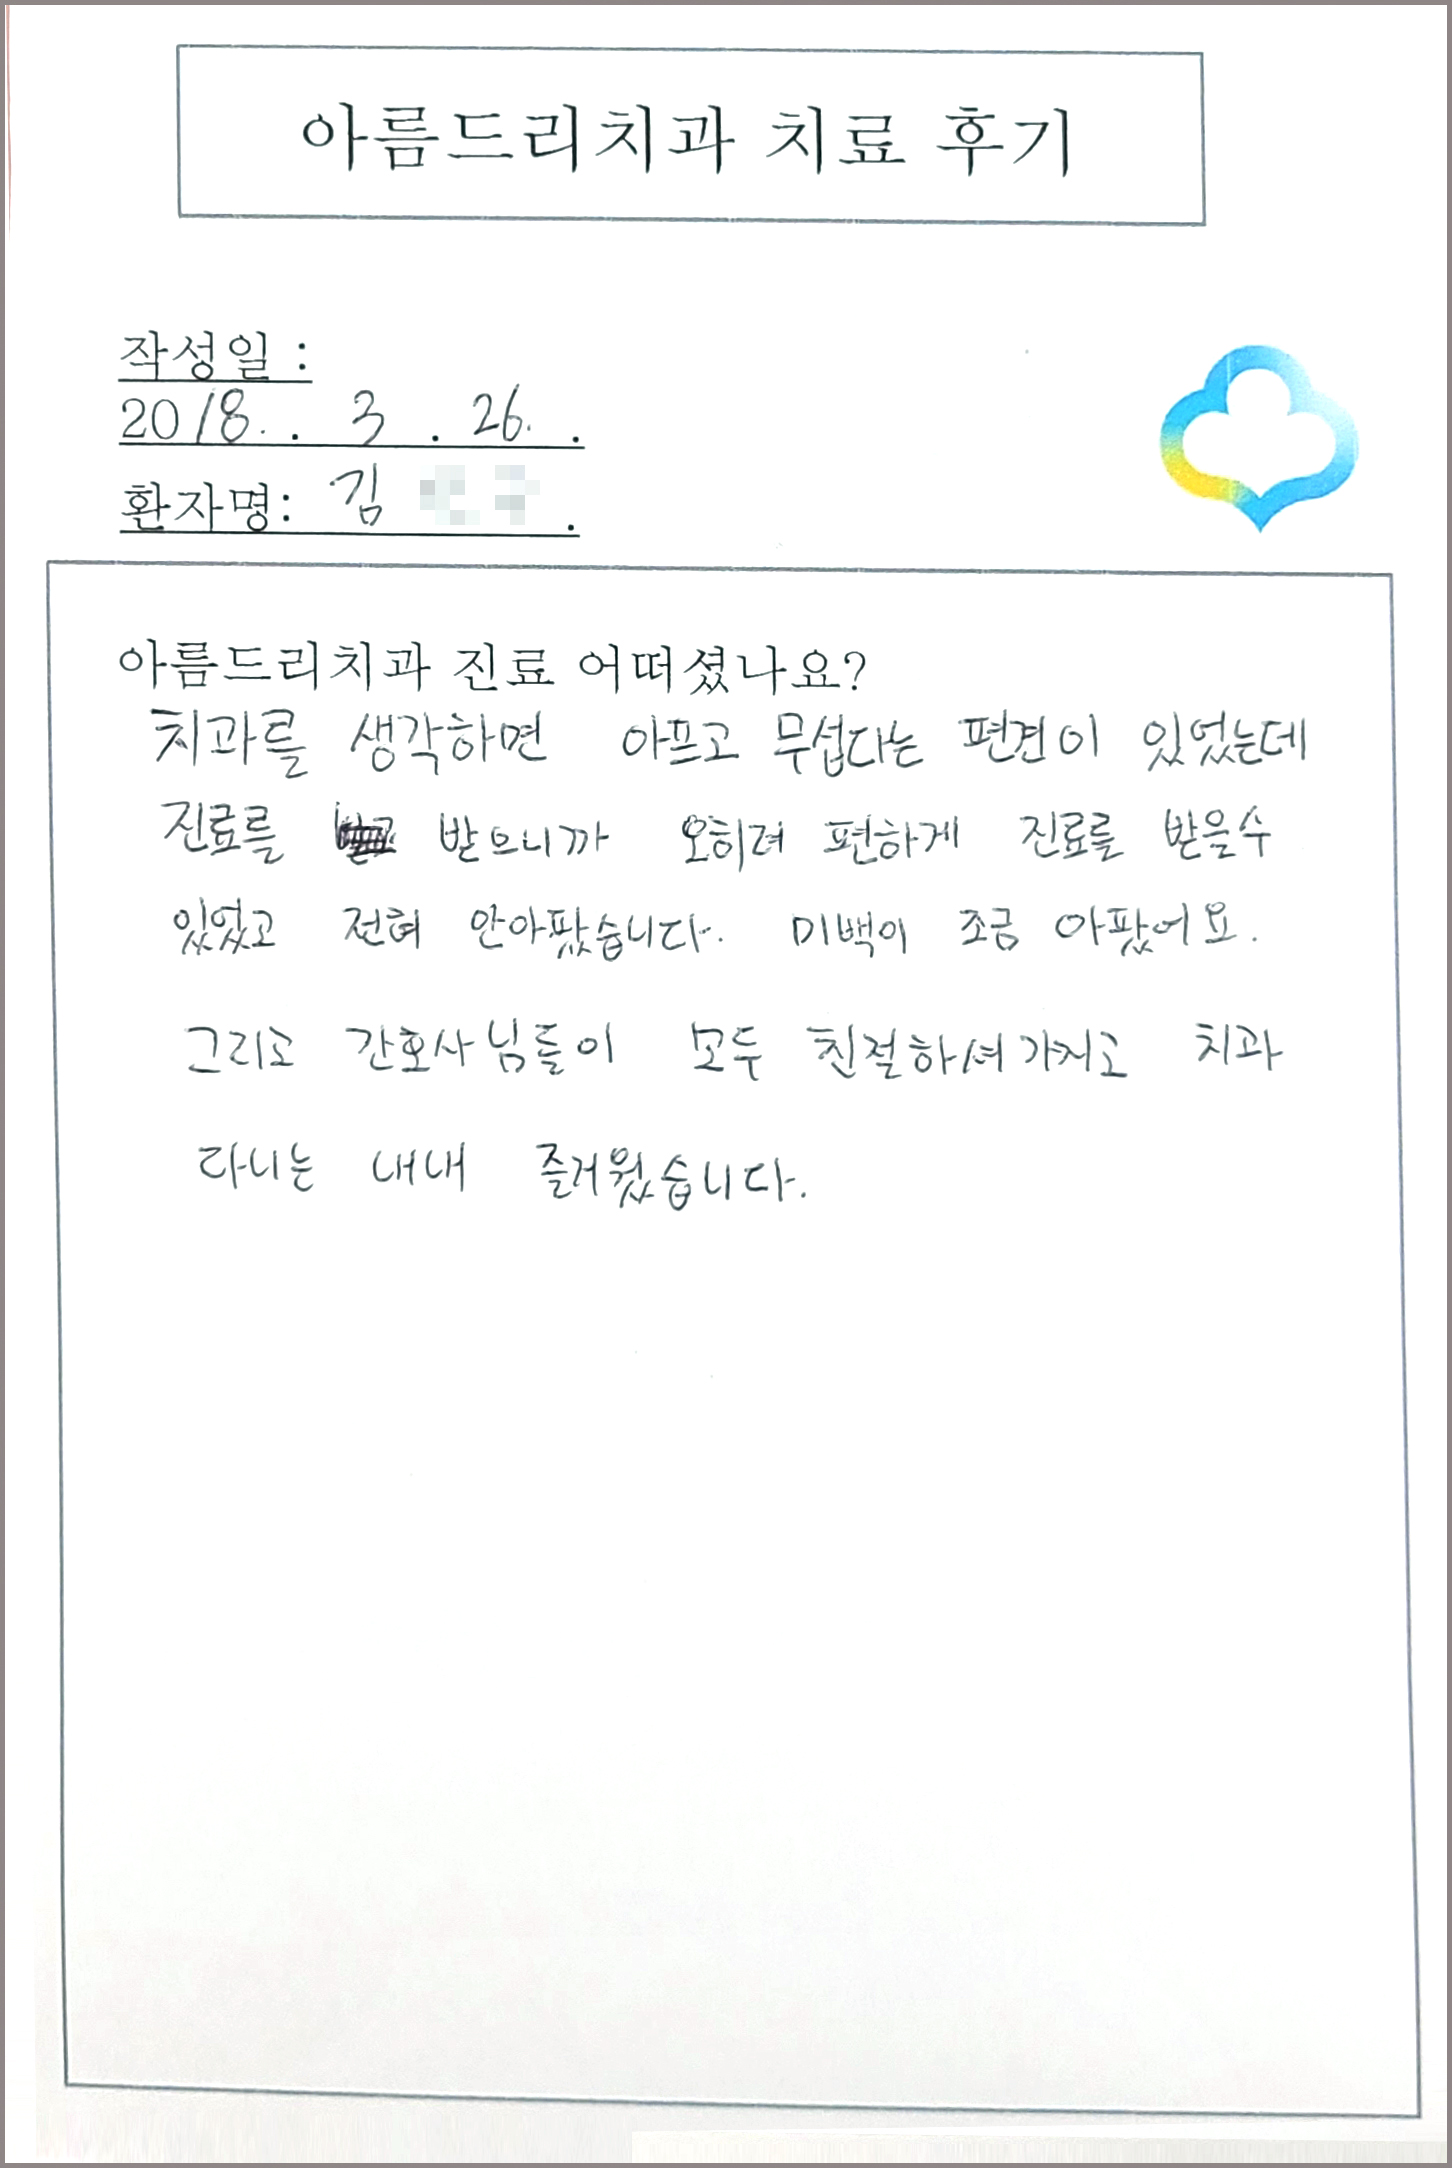 아름드리치과 치료 후기
작성일 :
2018. . 3 . 26. .
환자명: 김 .
아름드리치과 진료 어떠셨나요?
치과를 생각하면 아프고 무섭다는 편견이 있었는데
진료를 받으니까 오히려 편하게 진료를 받을수
있었고 전혀 안아팠습니다. 미백이 조금 아팠어요.
그리고 간호사님들이 모두 친절하셔가지고 치과
다니는 내내 즐거웠습니다.